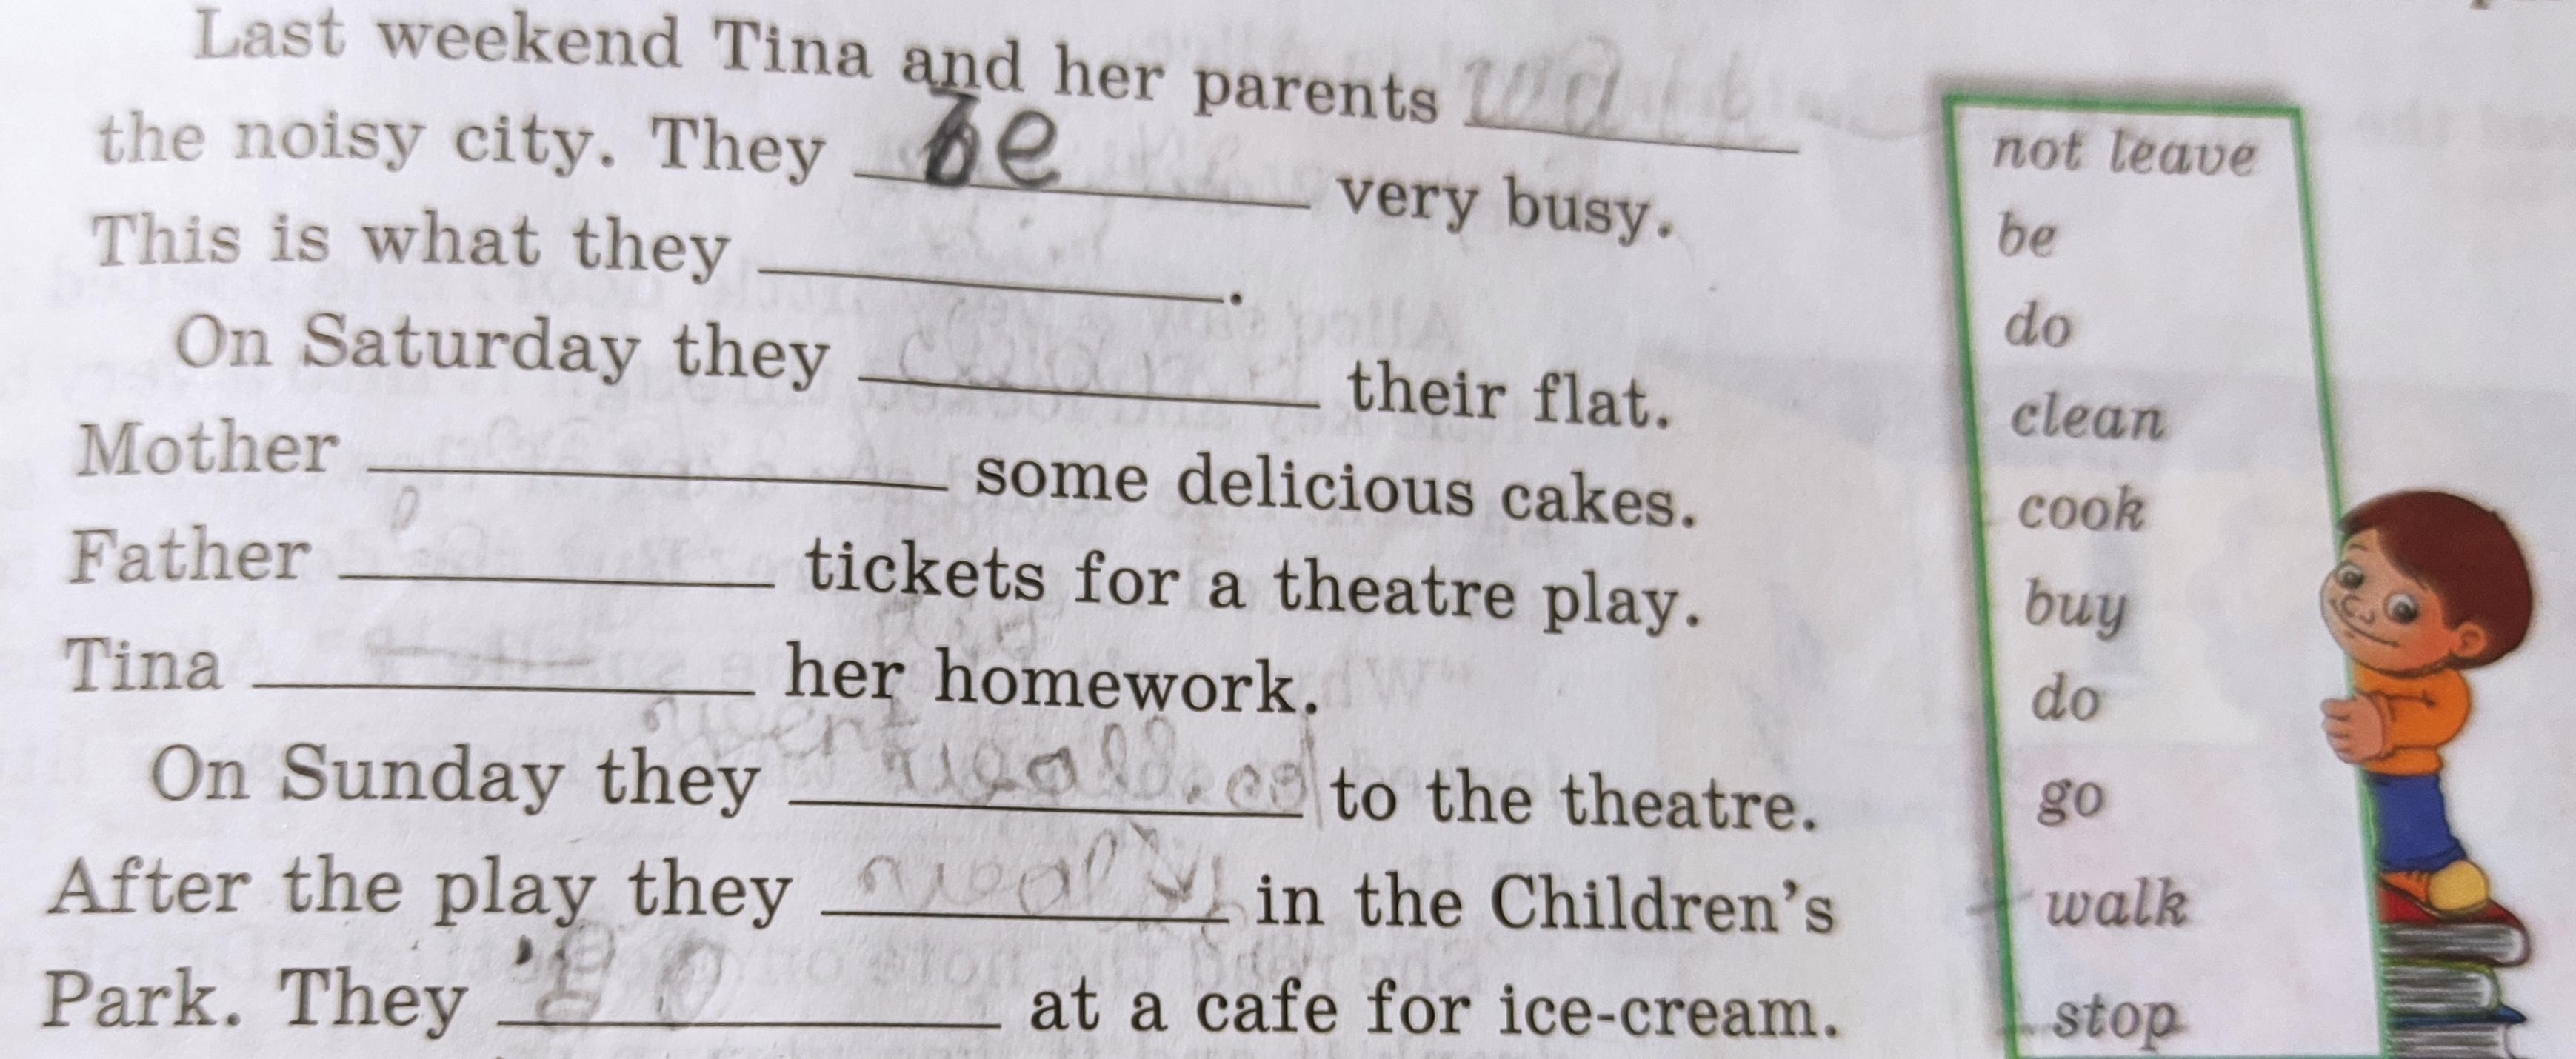 Last weekend Tina and her parents ____________
the noisy city. They be ____________ very busy.
This is what they ____________.
On Saturday they ____________ their flat.
Mother ____________ some delicious cakes.
Father ____________ tickets for a theatre play.
Tina ____________ her homework.
went
On Sunday they ____________ to the theatre.
After the play they ____________ in the Children's
Park. They ____________ at a cafe for ice-cream.
not leave
be
do
clean
cook
buy
do
go
walk
stop